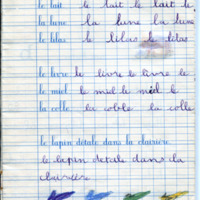 le lait le lait le lait le
la lune la lune la lune
le lilas le lilas le lilas
le livre le livre le livre le
le miel le miel le miel le
la colle la colle la colle
le lapin détale dans la clairière
le lapin détale dans la
clairière